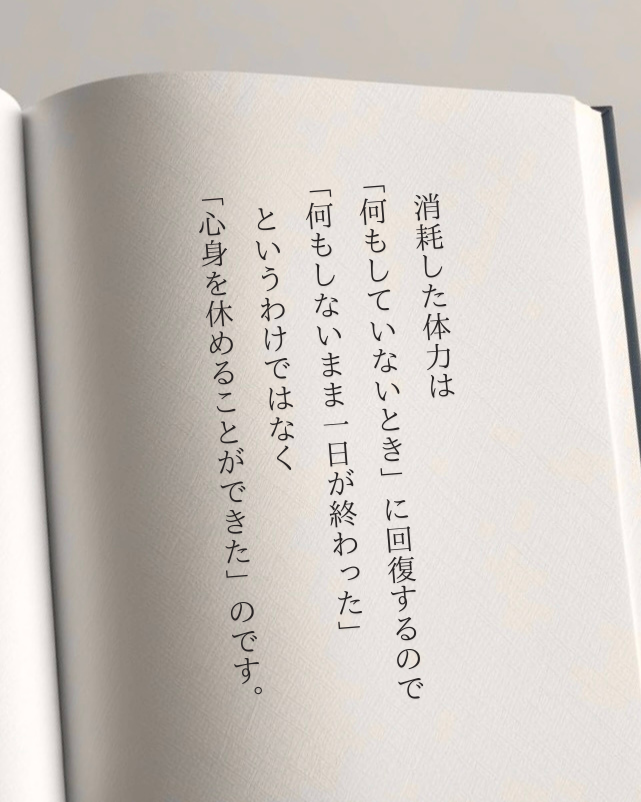 消耗した体力は
「何もしていないとき」に回復するので
「何もしないまま一日が終わった」
というわけではなく
「心身を休めることができた」のです。